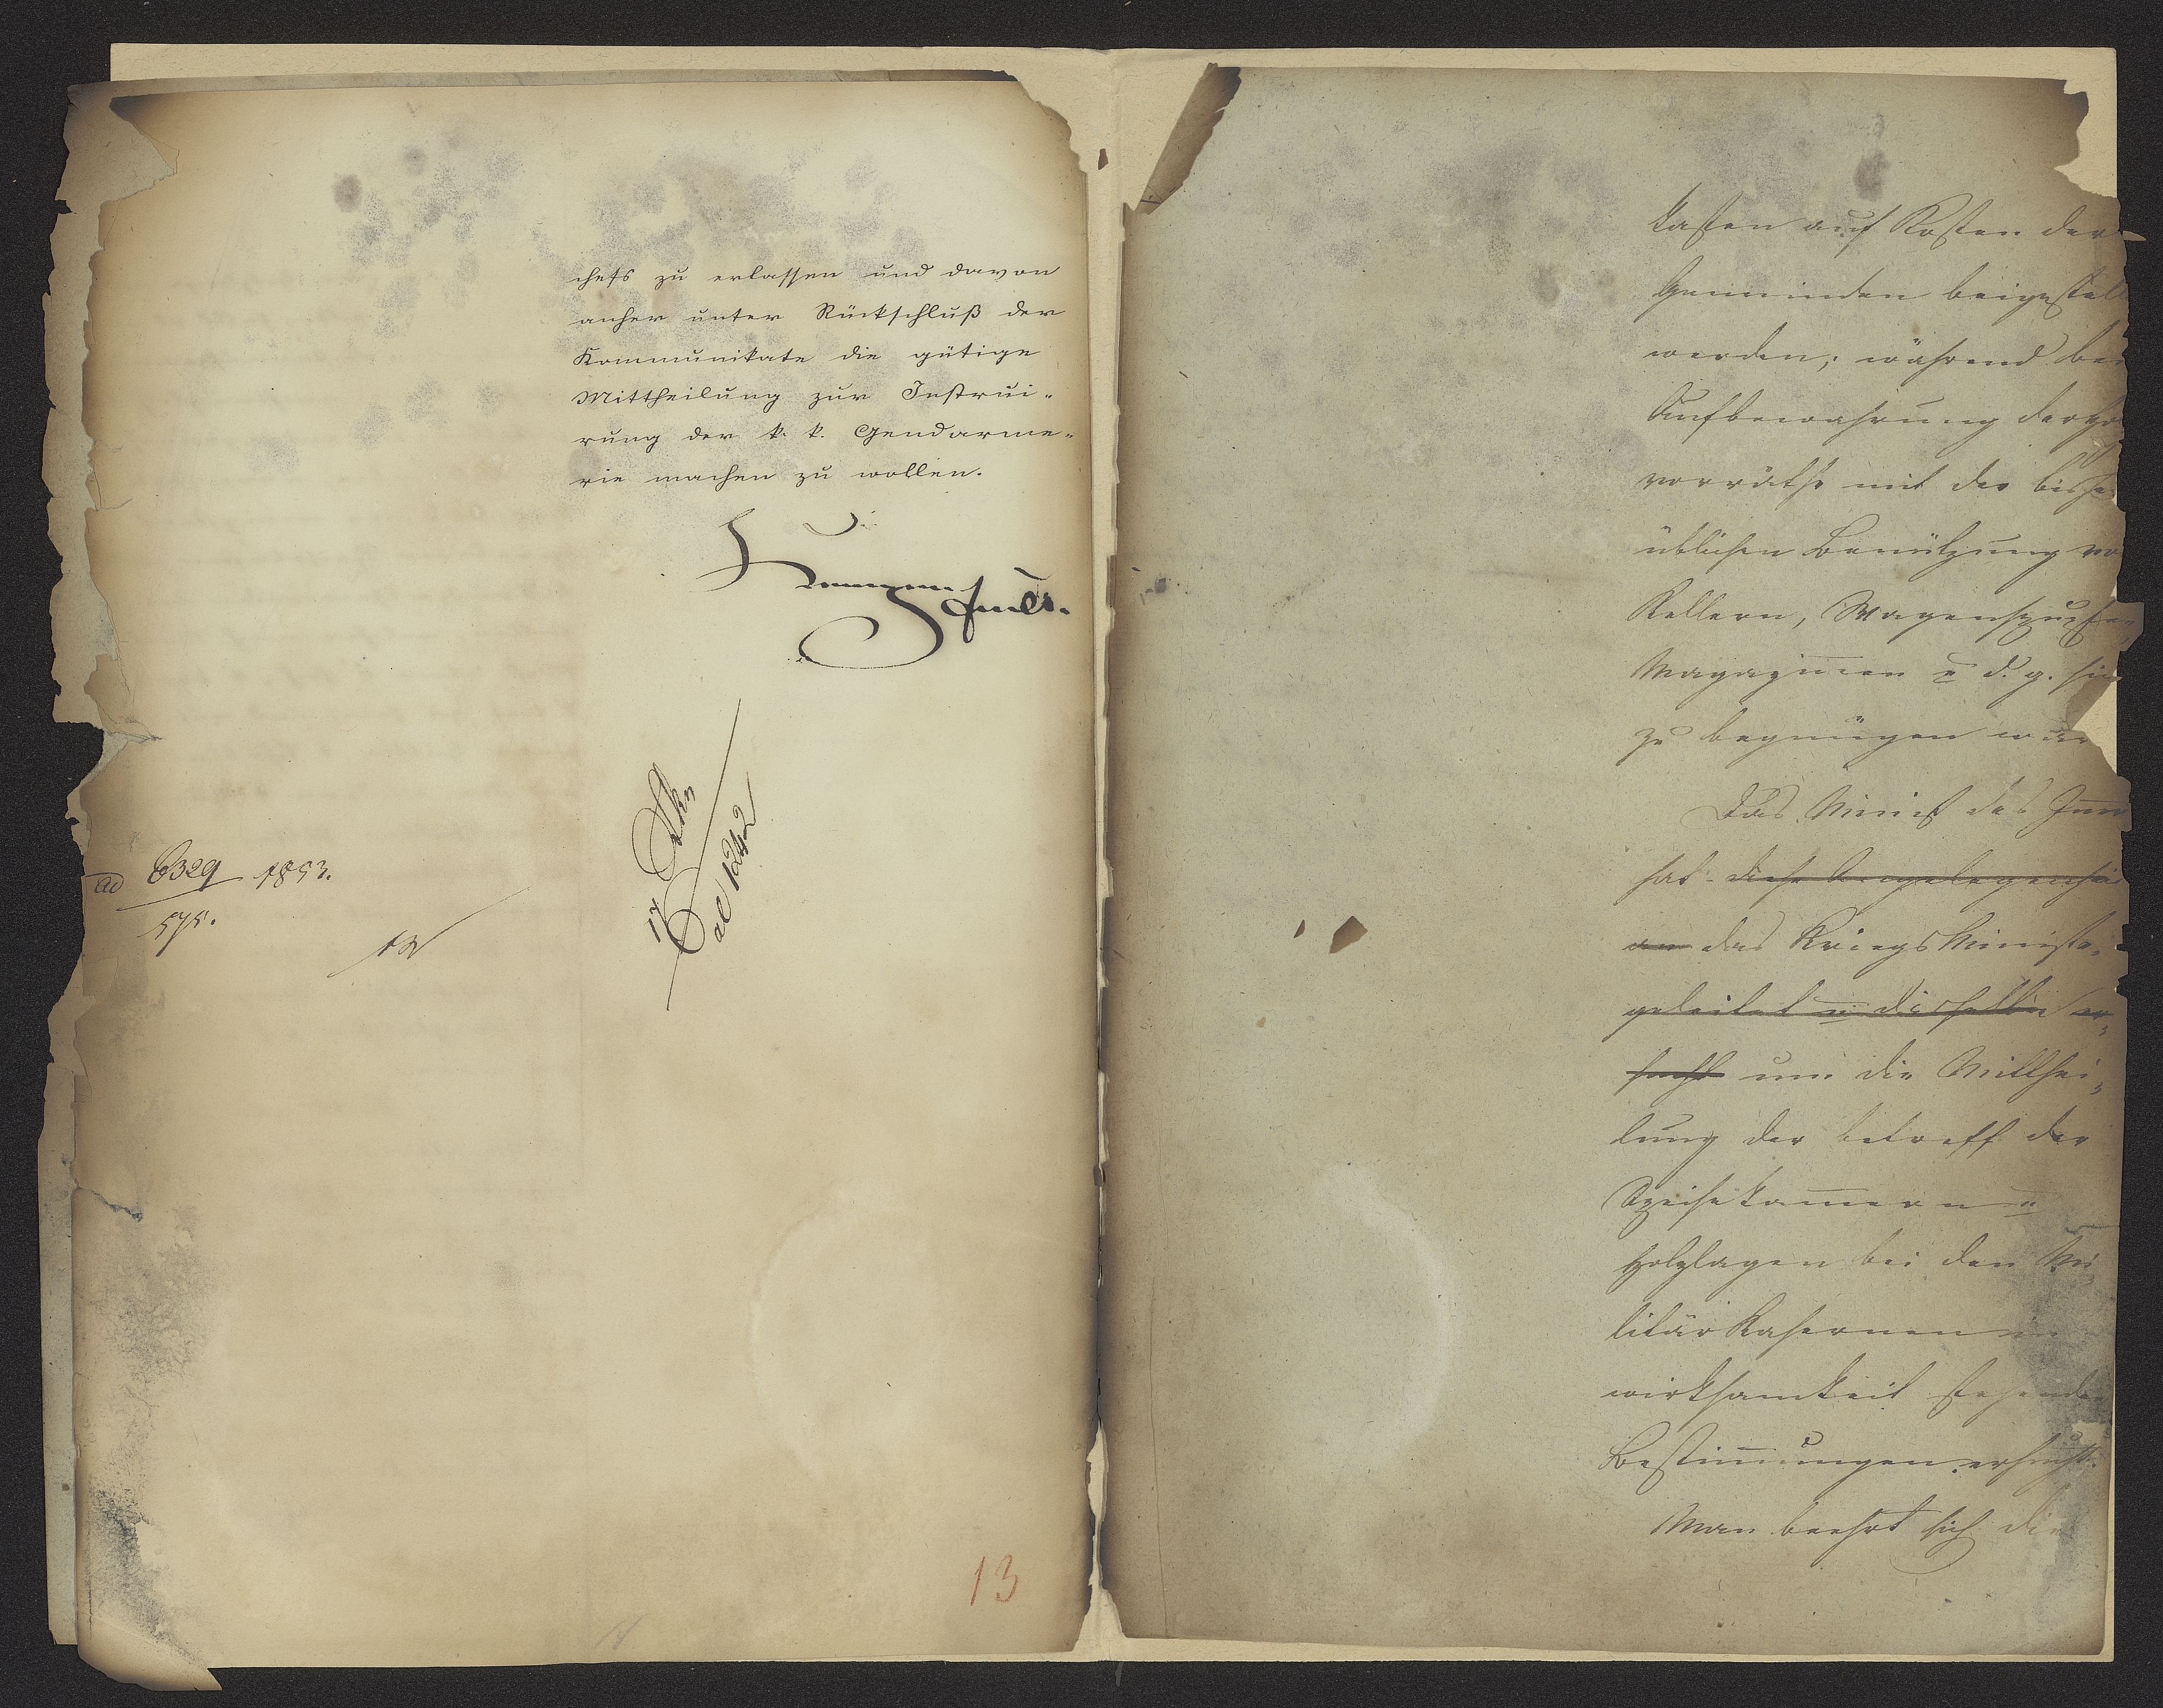 chefs zu erlassen und davon
anher unter Rückschluß der
Kommunikate die gütige
Mittheilung zur Instrui-
rung der k. k. Gendarme-
rie machen zu wollen.
ad 6329 1853.
575.
17 Okt
6
ad 1242
13
kasten auf Kosten der
Gemeinden beigestell
werden; während bei
Aufbewahrung der
vorräthe mit der bisher
üblichen Benützung vo
Kellern, Wagenschupfen,
Magazinen u d. g. sich
zu begnügen wäre
Das Minist des Inn
hat diese Angelegenhei
an das Kriegs Ministe-
geleitet u dasselbe er-
sucht um die Mitthei-
lung der betreff der
Speisekammern u
Holzlagen bei den Mi-
litär Kasernen in
wirksamkeit stehenden
Bestimmungen ersucht.
Man beehrt sich die